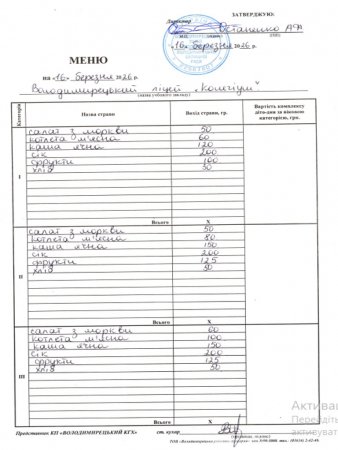 ЗАТВЕРДЖУЮ:
Директор Остапенко А.Ф
"16" березня 2026р.
МЕНЮ
на "16" березня 2026 р.
Володимирецький ліцей "Колегіум"
(назва учбового закладу)
Категорія Назва страви Вихід страви, гр. Вартість комплексу діто-дня за віковою категорією, грн.
I
салат з моркви 50
котлета м'ясна 60
каша ячна 120
сік 200
фрукти 100
хліб 30
Всього Х
II
салат з моркви 50
котлета м'ясна 80
каша ячна 150
сік 200
фрукти 125
хліб 30
Всього Х
III
салат з моркви 60
котлета м'ясна 100
каша ячна 150
сік 200
фрукти 125
хліб 50
Всього Х
Представник КП «ВОЛОДИМИРЕЦЬКИЙ КГХ» ст. кухар
Актива
Перейдіть
активуват